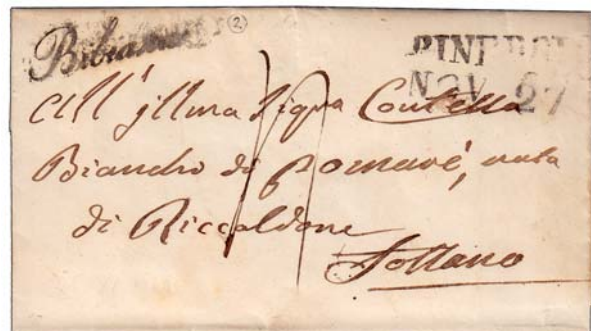 Bibiana
2
PINEROL
NOV. 27
All' jllma Sigra Contessa
Bianchi di Pomaré, nata
di Riccaldone
Sottano